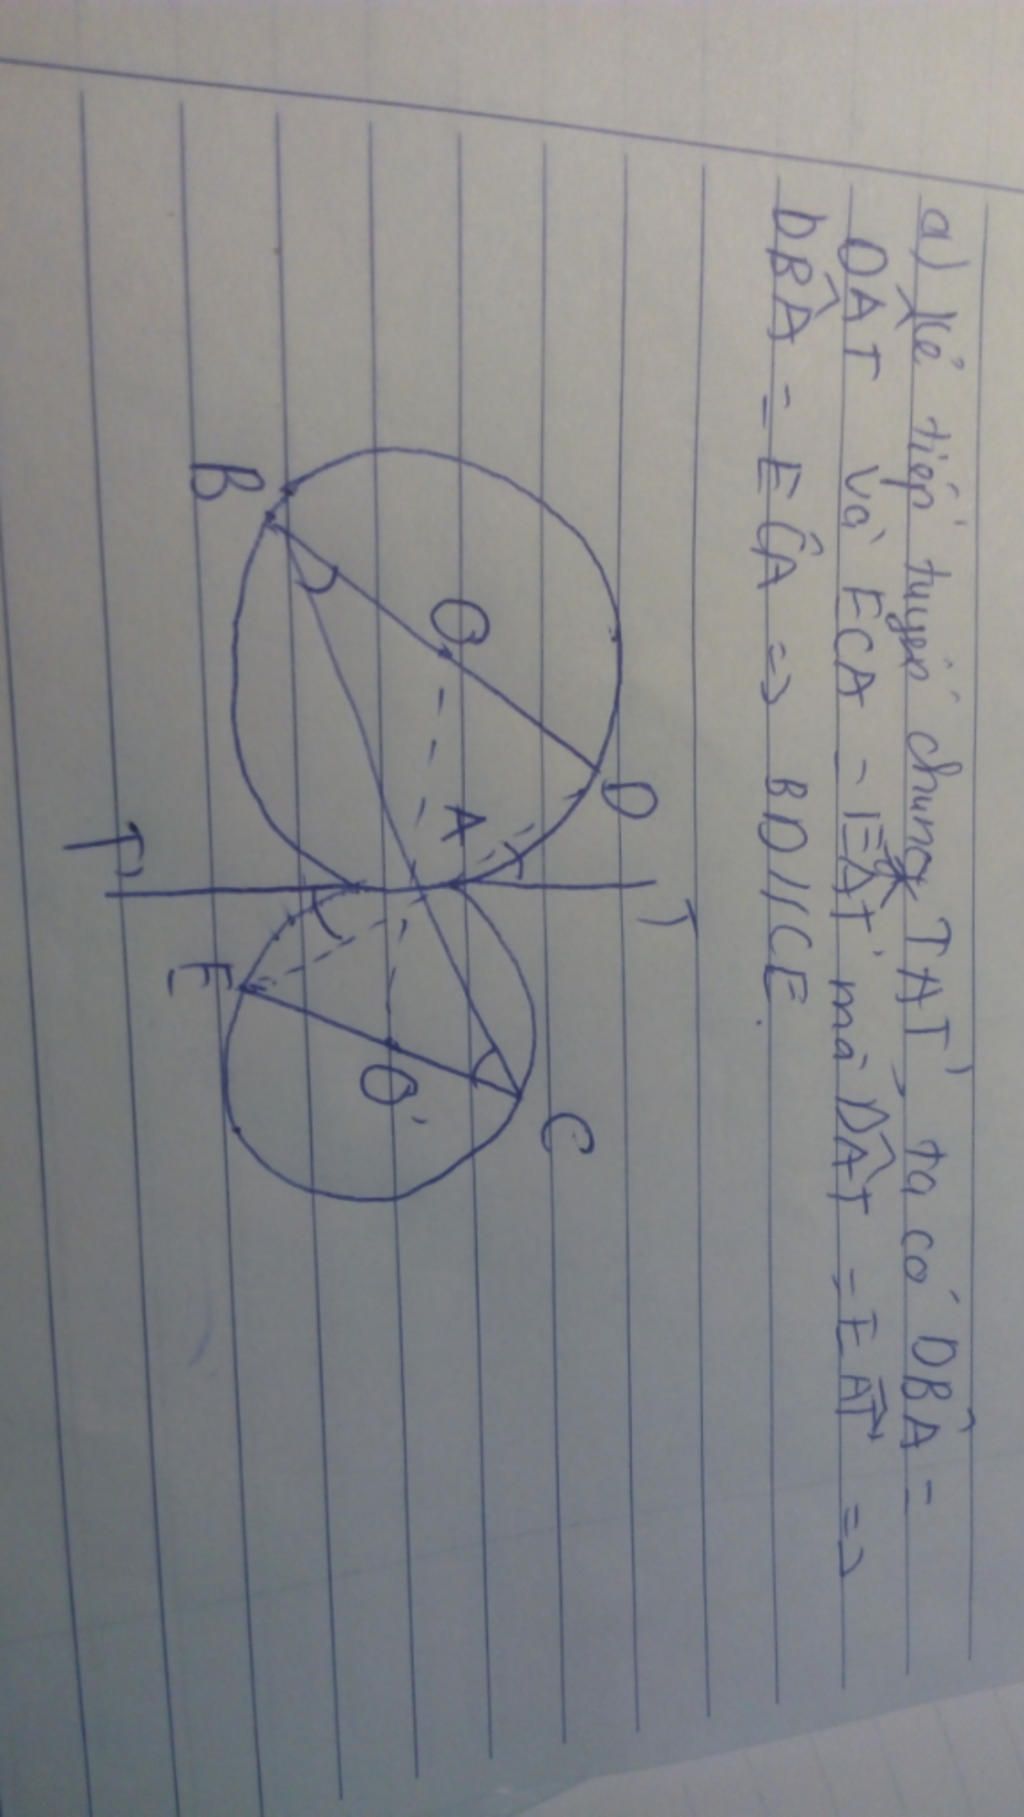 a) Kẻ tiếp tuyến chung TAT', ta có DBÂ =
DÂT và ECA = EÂT' mà DÂT = EÂT' =>
DBÂ = EĈA => BD//CE.
B
O
D
A
T
T'
E
O'
C